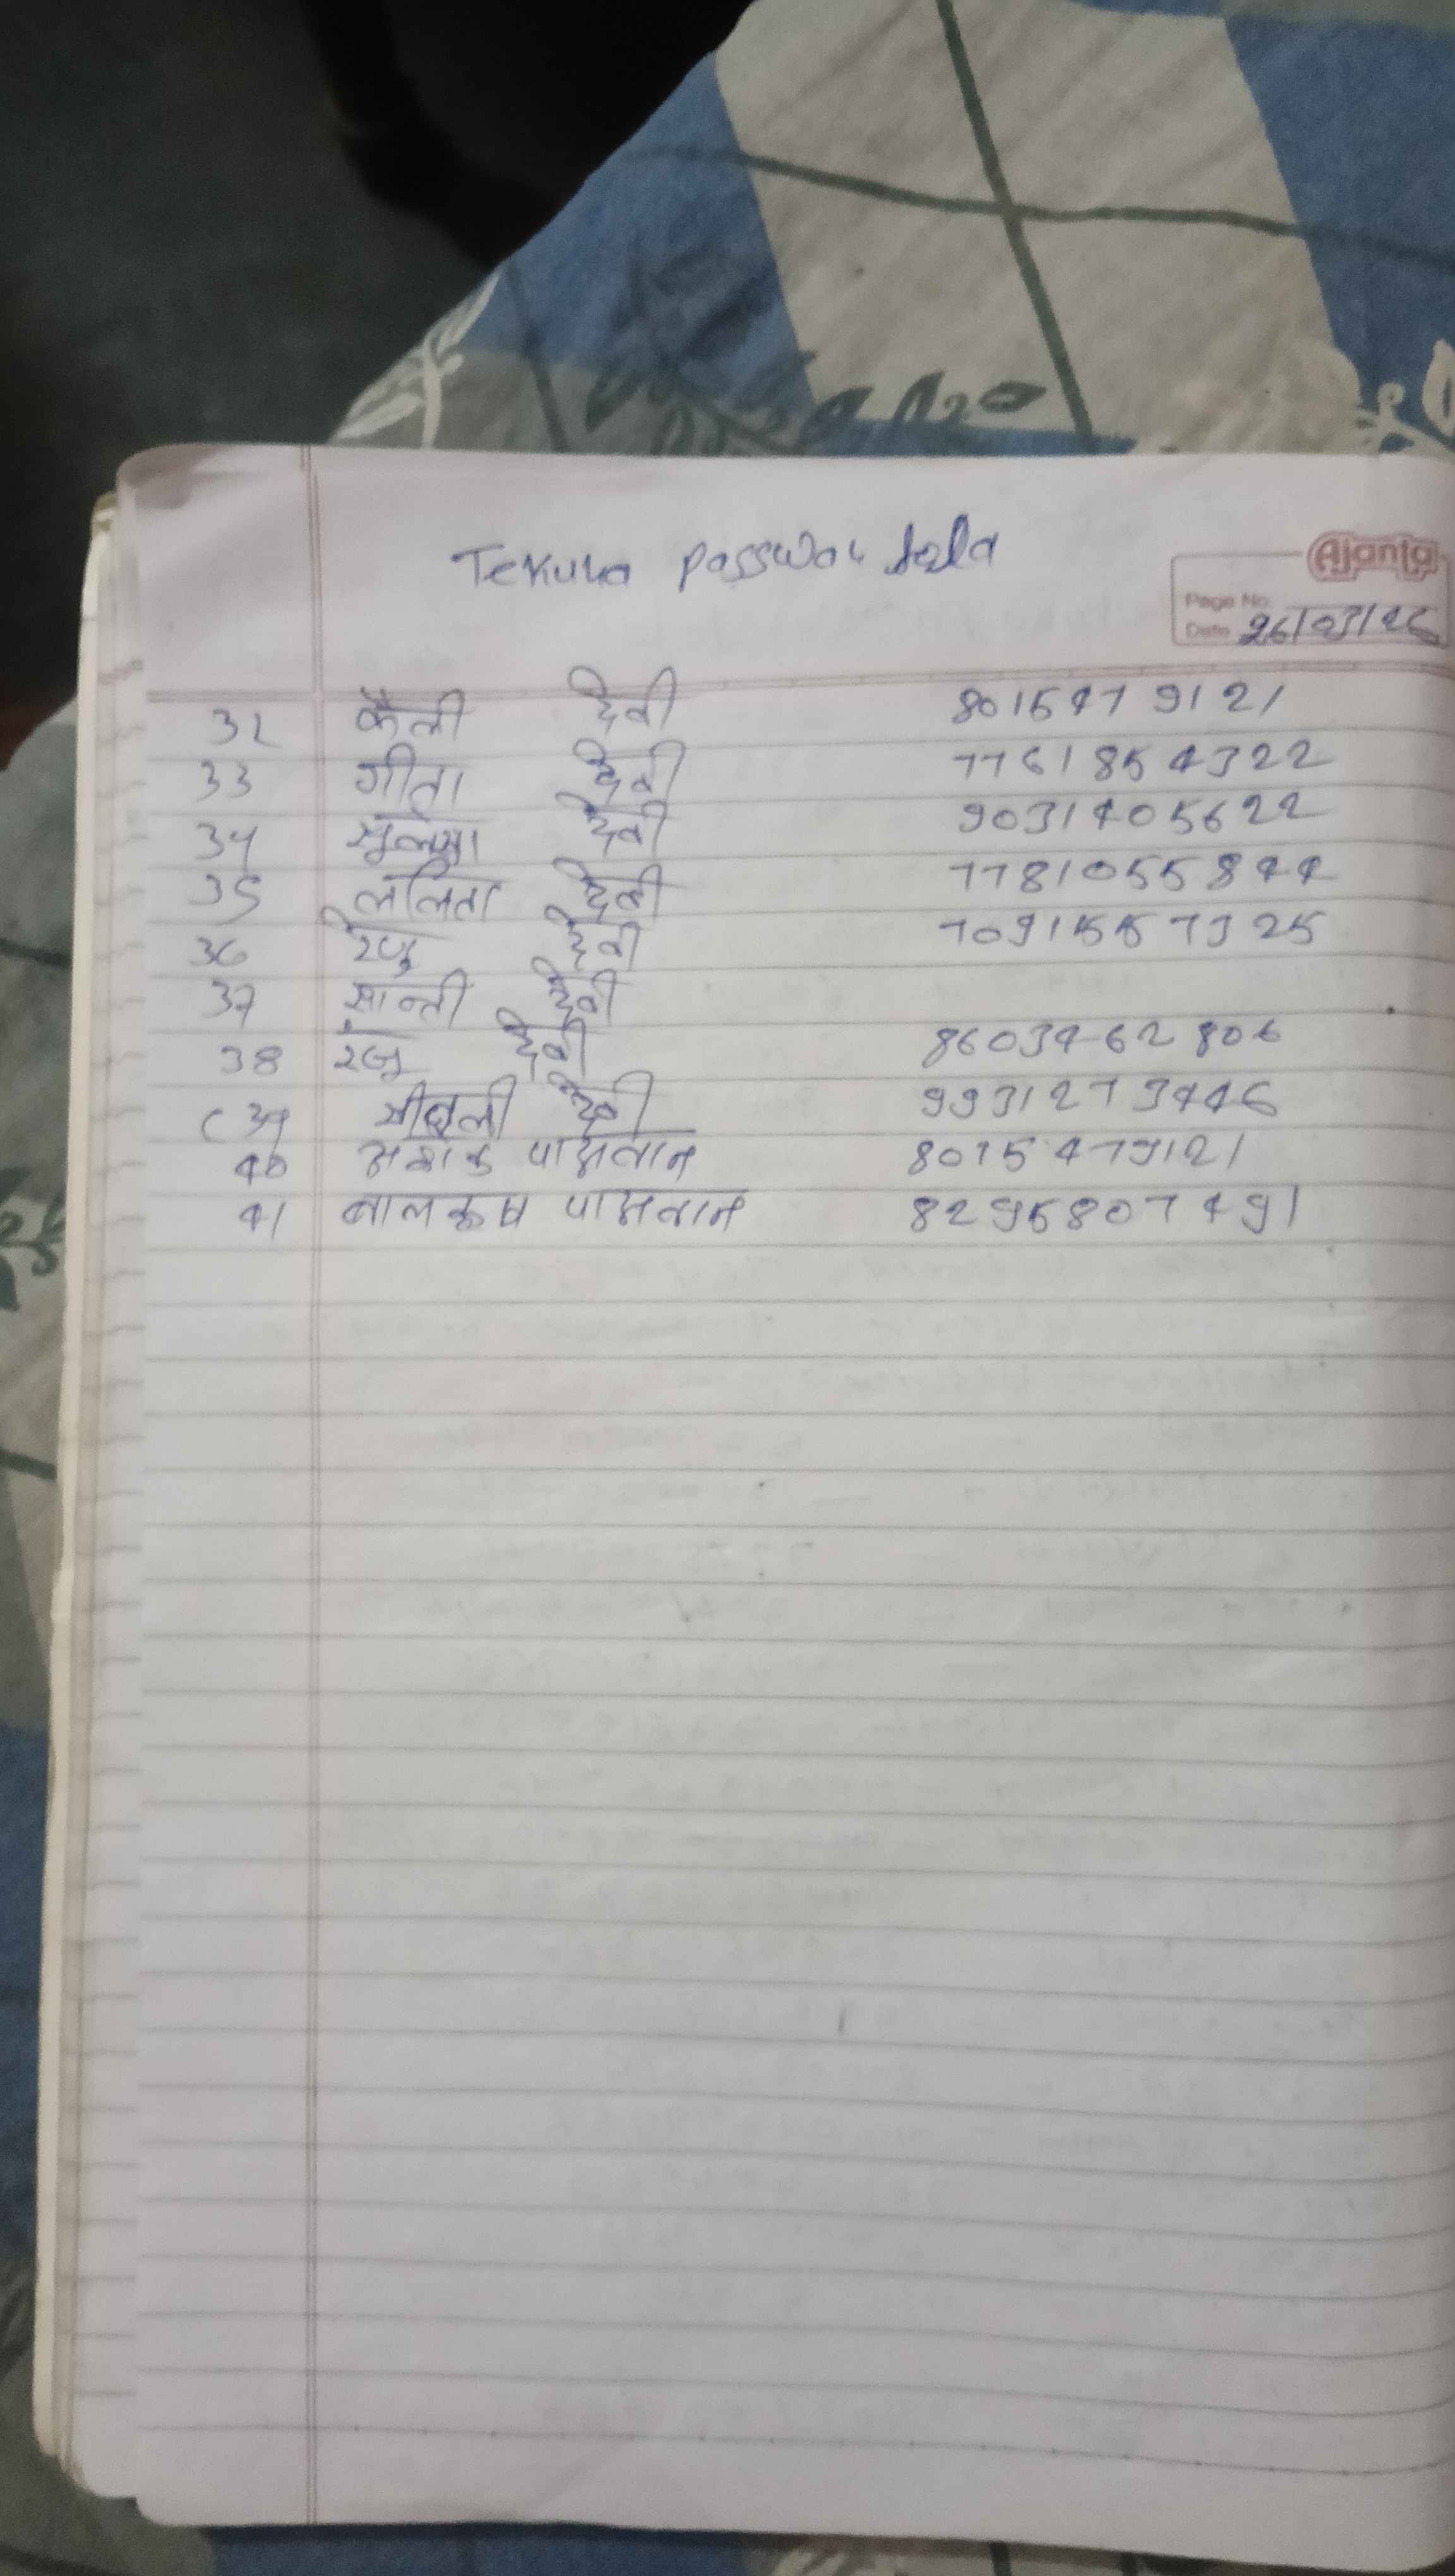 Tekuna passwan tola
Ajanta
Page No.
Date 26/03/26
32 कैली देवी 8015479121
33 गीता देवी 7761854322
34 देवी 9031405622
35 ललिता देवी 7781055844
36 रेणु देवी 7091557325
37 सान्ती देवी
38 रंजु देवी 8603462806
39 देवी 9931273446
40 पासवान 8015479121
41 बालकृष पासवान 8295807491